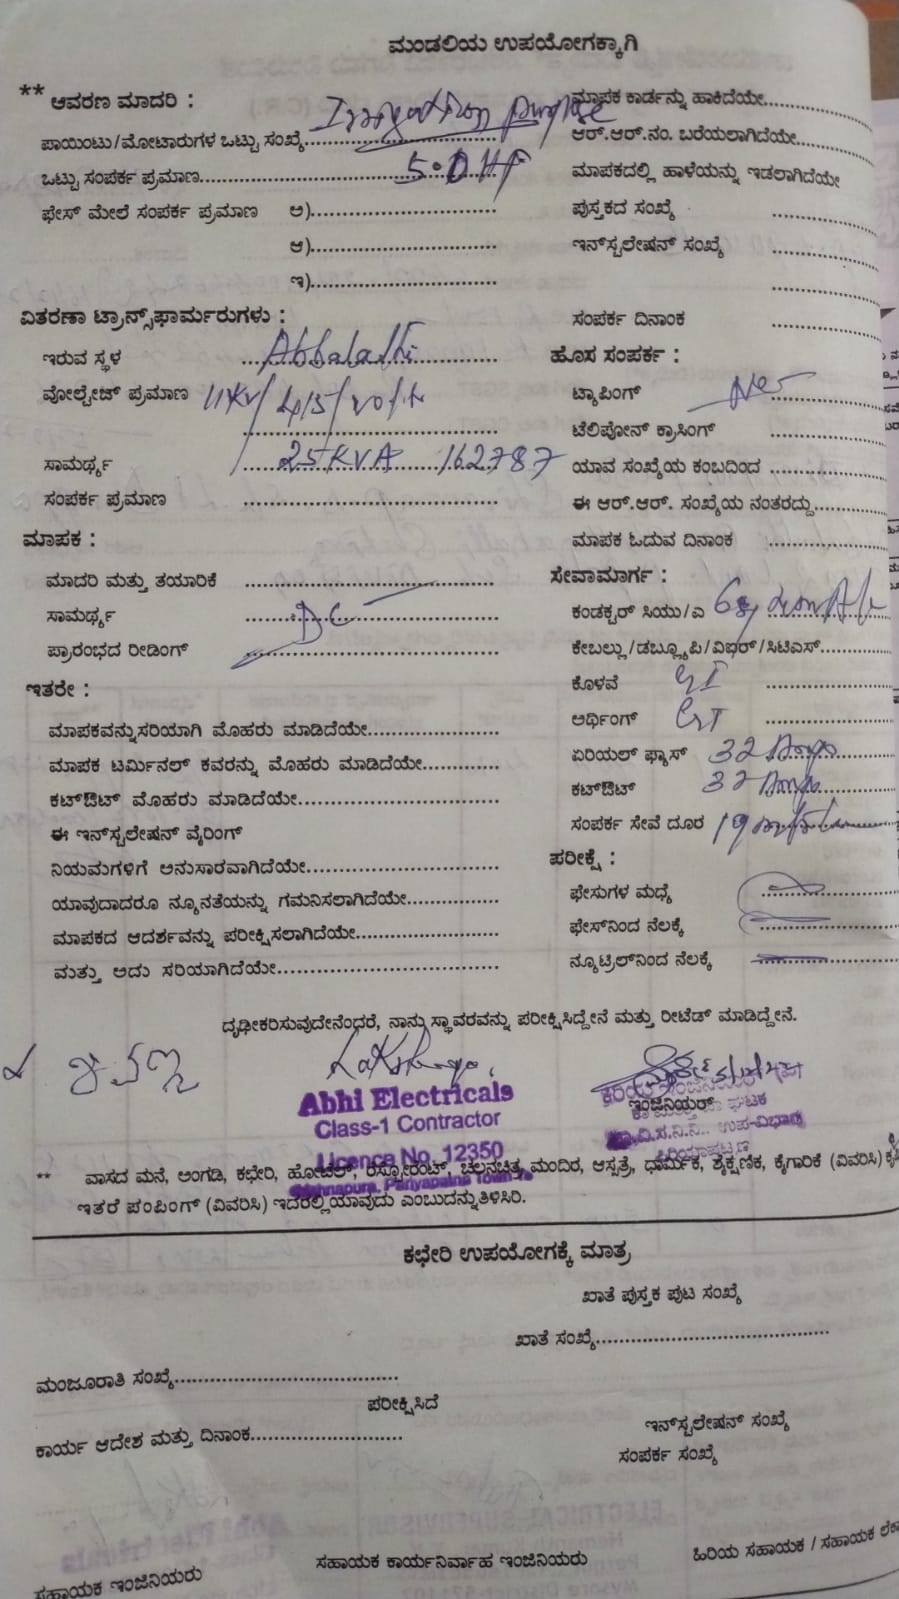 ಮಂಡಲಿಯ ಉಪಯೋಗಕ್ಕಾಗಿ
** ಆವರಣ ಮಾದರಿ :
Irrigation purpose
ಪಾಯಿಂಟು/ಮೋಟಾರುಗಳ ಒಟ್ಟು ಸಂಖ್ಯೆ
ಒಟ್ಟು ಸಂಪರ್ಕ ಪ್ರಮಾಣ 5.0 HP
ಫೇಸ್ ಮೇಲೆ ಸಂಪರ್ಕ ಪ್ರಮಾಣ ಅ)
ಆ)
ಇ)
ವಿತರಣಾ ಟ್ರಾನ್ಸ್‌ಫಾರ್ಮರುಗಳು :
ಇರುವ ಸ್ಥಳ Abbalathi
ವೋಲ್ಟೇಜ್ ಪ್ರಮಾಣ 11KV/415/
ಸಾಮರ್ಥ್ಯ 25 KVA 162787
ಸಂಪರ್ಕ ಪ್ರಮಾಣ
ಮಾಪಕ :
ಮಾದರಿ ಮತ್ತು ತಯಾರಿಕೆ
ಸಾಮರ್ಥ್ಯ DC
ಪ್ರಾರಂಭದ ರೀಡಿಂಗ್
ಇತರೇ :
ಮಾಪಕವನ್ನು ಸರಿಯಾಗಿ ಮೊಹರು ಮಾಡಿದೆಯೇ
ಮಾಪಕ ಟರ್ಮಿನಲ್ ಕವರನ್ನು ಮೊಹರು ಮಾಡಿದೆಯೇ
ಕಟ್‌ಔಟ್ ಮೊಹರು ಮಾಡಿದೆಯೇ
ಈ ಇನ್‌ಸ್ಟಲೇಷನ್ ವೈರಿಂಗ್
ನಿಯಮಗಳಿಗೆ ಅನುಸಾರವಾಗಿದೆಯೇ
ಯಾವುದಾದರೂ ನ್ಯೂನತೆಯನ್ನು ಗಮನಿಸಲಾಗಿದೆಯೇ
ಮಾಪಕದ ಆದರ್ಶವನ್ನು ಪರೀಕ್ಷಿಸಲಾಗಿದೆಯೇ
ಮತ್ತು ಅದು ಸರಿಯಾಗಿದೆಯೇ
ಮಾಪಕ ಕಾರ್ಡನ್ನು ಹಾಕಿದೆಯೇ
ಆರ್.ಆರ್.ನಂ. ಬರೆಯಲಾಗಿದೆಯೇ
ಮಾಪಕದಲ್ಲಿ ಹಾಳೆಯನ್ನು ಇಡಲಾಗಿದೆಯೇ
ಪುಸ್ತಕದ ಸಂಖ್ಯೆ
ಇನ್‌ಸ್ಟಲೇಷನ್ ಸಂಖ್ಯೆ
ಸಂಪರ್ಕ ದಿನಾಂಕ
ಹೊಸ ಸಂಪರ್ಕ :
ಟ್ಯಾಪಿಂಗ್
ಟೆಲಿಪೋನ್ ಕ್ರಾಸಿಂಗ್
ಯಾವ ಸಂಖ್ಯೆಯ ಕಂಬದಿಂದ
ಈ ಆರ್.ಆರ್. ಸಂಖ್ಯೆಯ ನಂತರದ್ದು
ಮಾಪಕ ಓದುವ ದಿನಾಂಕ
ಸೇವಾಮಾರ್ಗ :
ಕಂಡಕ್ಟರ್ ಸಿಯು/ಎ
ಕೇಬಲ್ಲು/ಡಬ್ಲ್ಯೂಪಿ/ವಿಐರ್/ಸಿಟಿಎಸ್
ಕೊಳವೆ GI
ಅರ್ಥಿಂಗ್ GI
ಏರಿಯಲ್ ಫ್ಯೂಸ್ 32 Amps
ಕಟ್‌ಔಟ್ 32 Amps
ಸಂಪರ್ಕ ಸೇವೆ ದೂರ 19
ಪರೀಕ್ಷೆ :
ಫೇಸುಗಳ ಮಧ್ಯೆ
ಫೇಸ್‌ನಿಂದ ನೆಲಕ್ಕೆ
ನ್ಯೂಟ್ರಿಲ್‌ನಿಂದ ನೆಲಕ್ಕೆ
ದೃಢೀಕರಿಸುವುದೇನೆಂಧರೆ, ನಾನು ಸ್ಥಾವರವನ್ನು ಪರೀಕ್ಷಿಸಿದ್ದೇನೆ ಮತ್ತು ರೀಟೆಡ್ ಮಾಡಿದ್ದೇನೆ.
Abhi Electricals
Class-1 Contractor
Licence No. 12350
ಇಂಜಿನಿಯರ್
** ವಾಸದ ಮನೆ, ಅಂಗಡಿ, ಕಛೇರಿ, ಹೋಟೆಲ್, ರೆಸ್ಟೋರಂಟ್, ಚಲನಚಿತ್ರ ಮಂದಿರ, ಆಸ್ಪತ್ರೆ, ಧಾರ್ಮಿಕ, ಶೈಕ್ಷಣಿಕ, ಕೈಗಾರಿಕೆ (ವಿವರಿಸಿ)
ಇತರೆ ಪಂಪಿಂಗ್ (ವಿವರಿಸಿ) ಇದರಲ್ಲಿ ಯಾವುದು ಎಂಬುದನ್ನು ತಿಳಿಸಿರಿ.
ಕಛೇರಿ ಉಪಯೋಗಕ್ಕೆ ಮಾತ್ರ
ಖಾತೆ ಪುಸ್ತಕ ಪುಟ ಸಂಖ್ಯೆ
ಖಾತೆ ಸಂಖ್ಯೆ
ಮಂಜೂರಾತಿ ಸಂಖ್ಯೆ
ಪರೀಕ್ಷಿಸಿದೆ
ಕಾರ್ಯ ಆದೇಶ ಮತ್ತು ದಿನಾಂಕ
ಇನ್‌ಸ್ಟಲೇಷನ್ ಸಂಖ್ಯೆ
ಸಂಪರ್ಕ ಸಂಖ್ಯೆ
ಸಹಾಯಕ ಇಂಜಿನಿಯರು
ಸಹಾಯಕ ಕಾರ್ಯನಿರ್ವಾಹ ಇಂಜಿನಿಯರು
ಹಿರಿಯ ಸಹಾಯಕ / ಸಹಾಯಕ